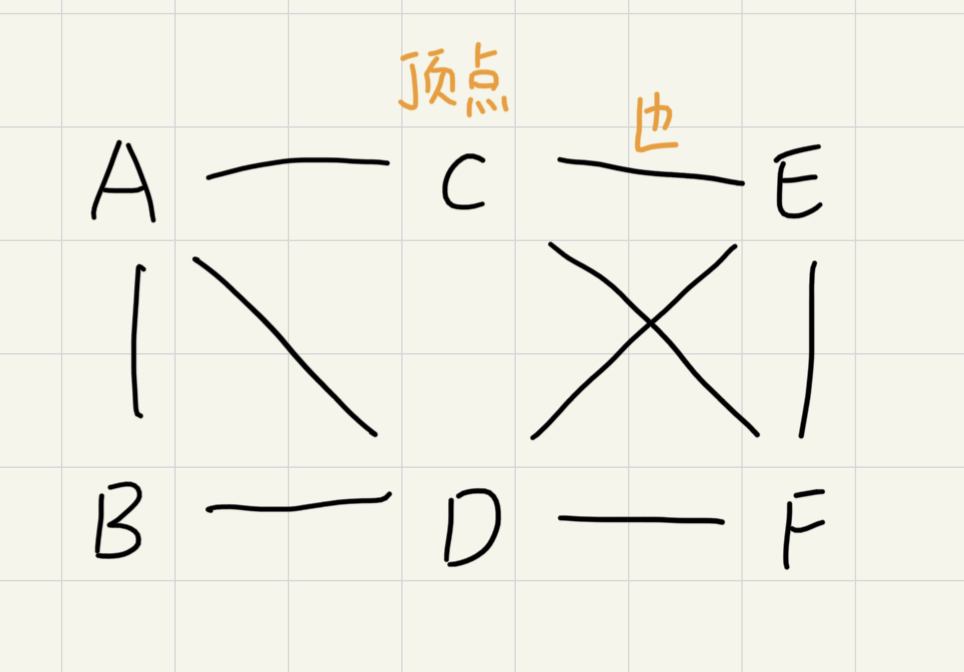 顶点
也
A C E
B D F